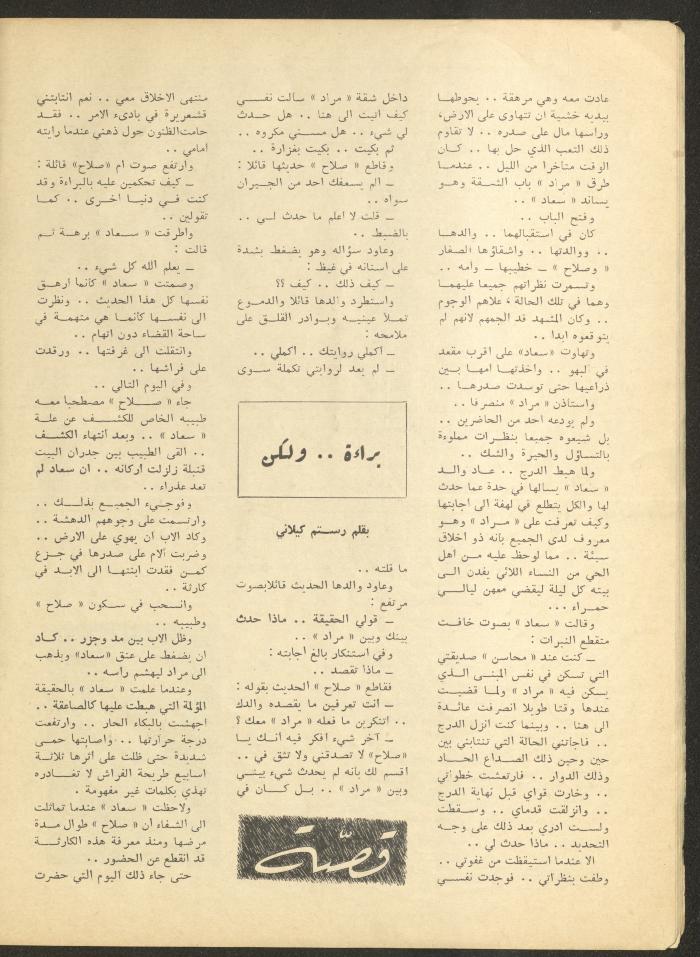 عادت معه وهي مرهقة .. يحوطها
بيديه خشية ان تتهاوى على الارض،
ورأسها مال على صدره .. لا تقاوم
ذلك التعب الذي حل بها .. كان
الوقت متأخرا من الليل .. عندما
طرق « مراد » باب الشقة وهو
يساند « سعاد » ..
وفتح الباب ..
كان في استقبالهما .. والدها
.. ووالدتها .. واشقاؤها الصغار
« وصلاح » ـ خطيبها ـ وامه ..
وتسمرت نظراتهم جميعا عليهما
وهما في تلك الحالة ، علاهم الوجوم
.. وكان المشهد قد الجمهم لانهم لم
يتوقعوه ابدا ..
وتهاوت «سعاد» على اقرب مقعد
في البهو .. واخذتها امها بين
ذراعيها حتى توسدت صدرها ..
واستأذن « مراد » منصرفا ..
ولم يودعه احد من الحاضرين ..
بل شيعوه جميعا بنظرات مملوءة
بالتساؤل والحيرة والشك ..
ولما هبط الدرج .. عاد والد
« سعاد » يسألها في حدة عما حدث
لها والكل يتطلع في لهفة الى اجابتها
وكيف تعرفت على « مراد » وهو
معروف لدى الجميع بأنه ذو اخلاق
سيئة .. مما لوحظ عليه من اهل
الحي من النساء اللائي يفدن الى
بيته كل ليلة ليقضي معهن ليالي
حمراء ...
وقالت « سعاد » بصوت خافت
متقطع النبرات :
ـ كنت عند « محاسن » صديقتي
التي تسكن في نفس المبنى الذي
يسكن فيه « مراد » ولما قضيت
عندها وقتا طويلا انصرفت عائدة
الى هنا .. وبينما كنت انزل الدرج
.. فاجأتني الحالة التي تنتابني بين
حين وحين ذلك الصداع الحاد
وذلك الدوار .. فارتعشت خطواتي
.. وخارت قواي قبل نهاية الدرج
.. وانزلقت قدماي .. وسقطت
ولست ادري بعد ذلك على وجه
التحديد .. ماذا حدث لي ..
الا عندما استيقظت من غفوتي ..
وطفت بنظراتي .. فوجدت نفسي
داخل شقة « مراد » سألت نفسي
كيف اتيت الى هنا .. هل حدث
لي شيء .. هل مسني مكروه ..
ثم بكيت .. بكيت بغزارة ..
وقاطع « صلاح » حديثها قائلا :
ـ الم يسعفك احد من الجيران
سواه ..
ـ قلت لا اعلم ما حدث لي ..
بالضبط ..
وعاود سؤاله وهو يضغط بشدة
على اسنانه في غيظ :
ـ كيف ذلك .. كيف ؟؟
واستطرد والدها قائلا والدموع
تملأ عينيه وبوادر القلق على
ملامحه :
ـ اكملي روايتك .. اكملي ..
ـ لم يعد لروايتي تكملة سوى
براءة .. ولكن
بقلم رستم كيلاني
ما قلته ..
وعاود والدها الحديث قائلابصوت
مرتفع :
ـ قولي الحقيقة .. ماذا حدث
بينك وبين « مراد » ..
وفي استنكار بالغ اجابته :
ـ ماذا تقصد ..
فقاطع « صلاح » الحديث بقوله :
ـ انت تعرفين ما يقصده والدك
.. اتنكرين ما فعله « مراد » معك ؟
ـ آخر شيء افكر فيه انك يا
«صلاح» لا تصدقني ولا تثق في ..
اقسم لك بأنه لم يحدث شيء بيني
وبين « مراد » .. بل كان في
قصّة
منتهى الاخلاق معي .. نعم انتابتني
قشعريرة في بادىء الامر .. فقد
حامت الظنون حول ذهني عندما رأيته
امامي ..
وارتفع صوت ام «صلاح» قائلة :
ـ كيف تحكمين عليه بالبراءة وقد
كنت في دنيا اخرى .. كما
تقولين ..
واطرقت « سعاد » برهة ثم
قالت :
ـ يعلم الله كل شيء ..
وصمتت « سعاد » كأنما ارهق
نفسها كل هذا الحديث .. ونظرت
الى نفسها كأنما هي متهمة في
ساحة القضاء دون اتهام ..
وانتقلت الى غرفتها .. ورقدت
على فراشها ..
وفي اليوم التالي ..
جاء « صلاح » مصطحبا معه
طبيبه الخاص للكشف عن علة
« سعاد » .. وبعد انتهاء الكشف
.. القى الطبيب بين جدران البيت
قنبلة زلزلت اركانه .. ان سعاد لم
تعد عذراء ..
وفوجيء الجميع بذلك ..
وارتسمت على وجوههم الدهشة ..
وكاد الاب ان يهوي على الارض ..
وضربت الام على صدرها في جزع
كمن فقدت ابنتها الى الابد في
كارثة ..
وانسحب في سكون « صلاح »
وطبيبه ..
وظل الاب بين مد وجزر .. كاد
ان يضغط على عنق «سعاد» ويذهب
الى مراد ليهشم رأسه ..
وعندما علمت « سعاد » بالحقيقة
المؤلمة التي هبطت عليها كالصاعقة ..
اجهشت بالبكاء الحار .. وارتفعت
درجة حرارتها .. واصابتها حمى
شديدة حتى ظلت على اثرها ثلاثة
اسابيع طريحة الفراش لا تغادره
تهذي بكلمات غير مفهومة .
ولاحظت « سعاد » عندما تماثلت
الى الشفاء أن « صلاح » طوال مدة
مرضها ومنذ معرفة هذه الكارثة
قد انقطع عن الحضور ..
حتى جاء ذلك اليوم التي حضرت